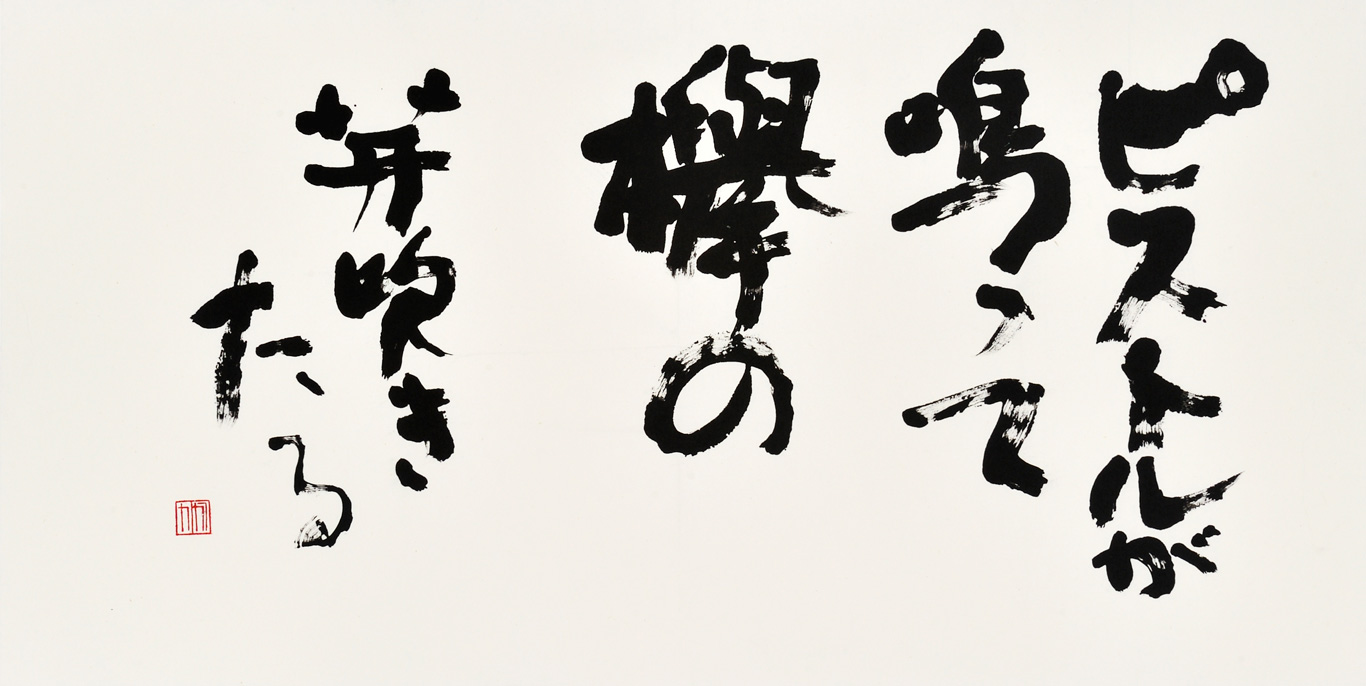 ピストルが
鳴って
欅の
芽吹き
たる